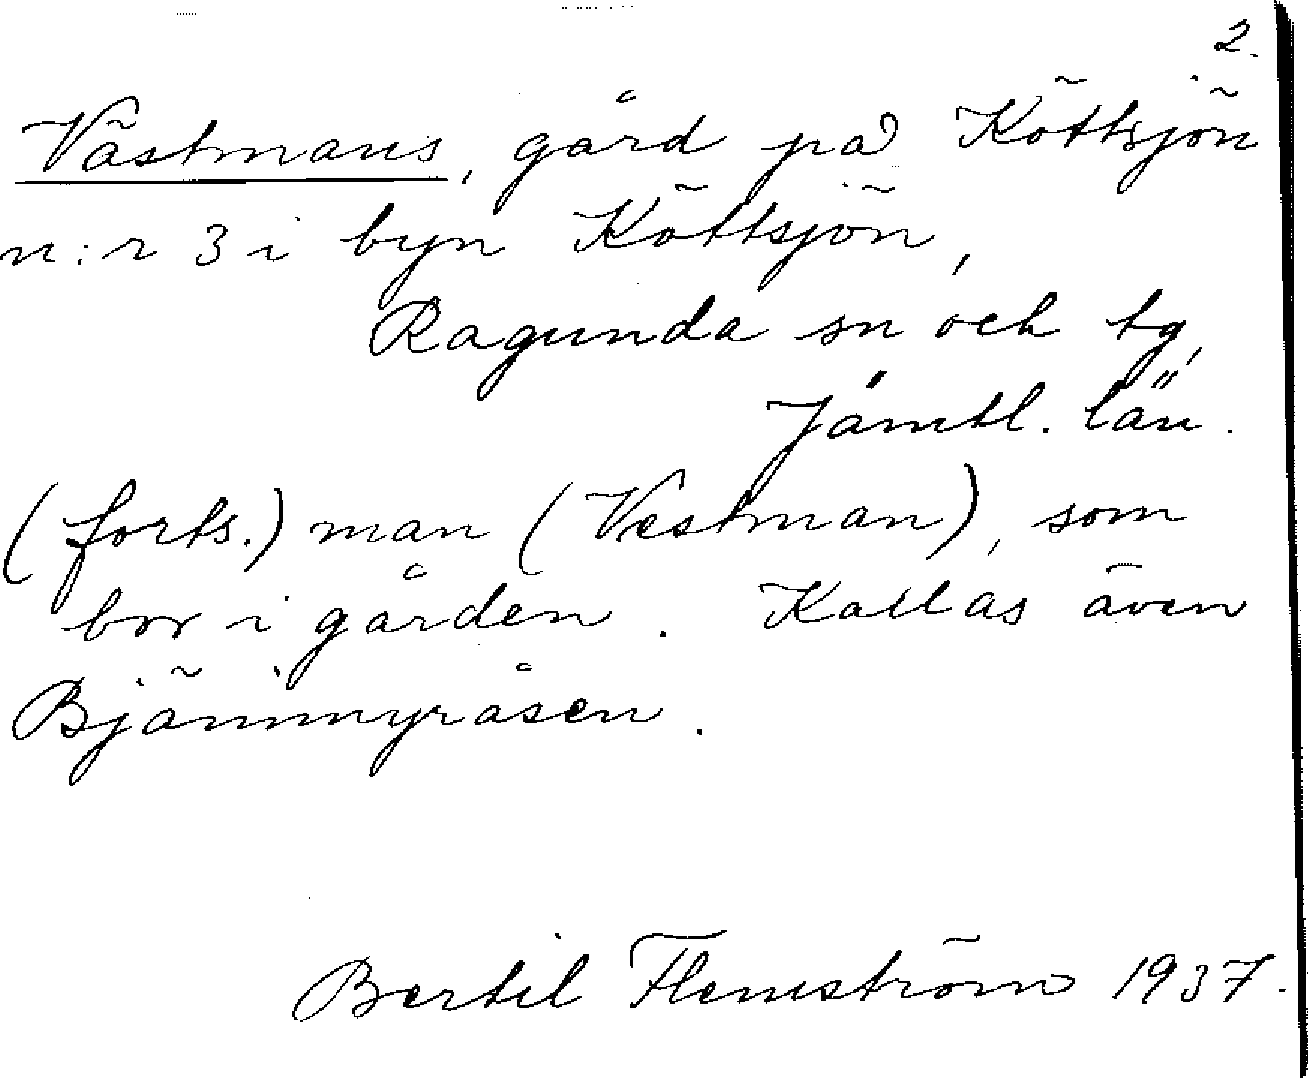 2.
Västmans, gård på Köttsjön
n:r 3 i byn Köttsjön,
Ragunda sn och tg,
Jämtl. län.
(forts.) man (Vestman), som
bor i gården. Kallas även
Bjämmyråsen.
Bertil Flemström 1937.